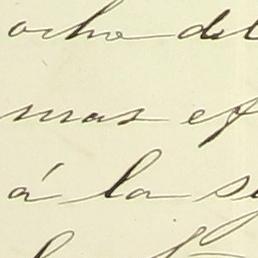 ocho del
mas ef
á la s